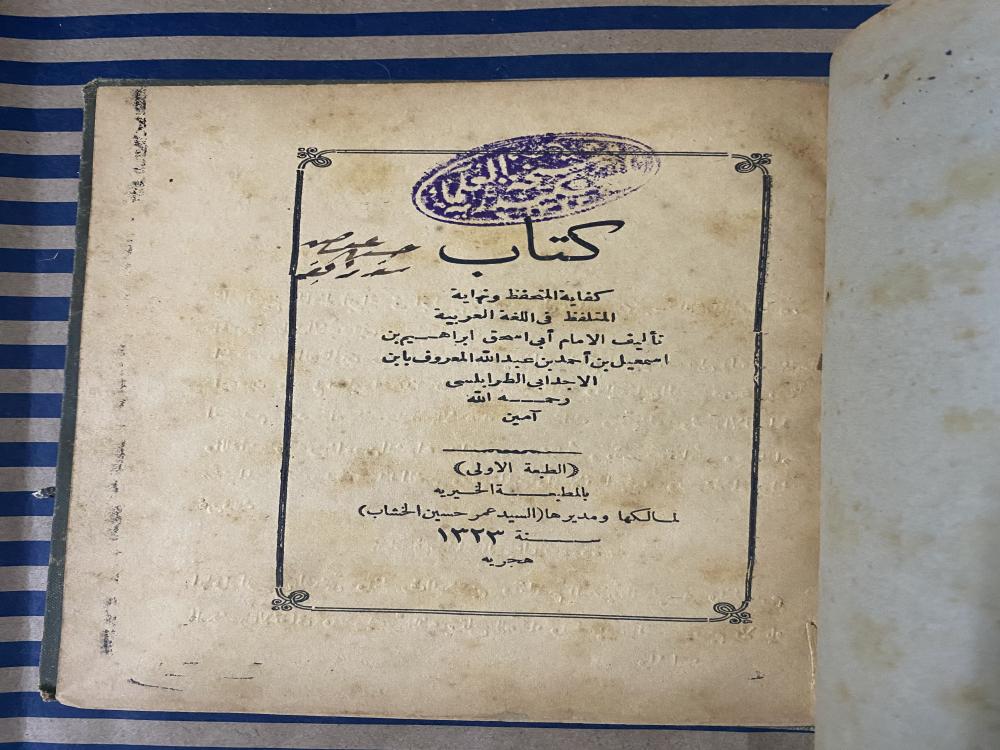 كتاب
كفاية المتحفظ ونهاية
المتلفظ فى اللغة العربية
تأليف الامام أبى اسحق ابراهيم بن
اسمعيل بن أحمد بن عبد الله المعروف بابن
الاجدابى الطرابلسى
رحمه الله
آمين
(الطبعة الاولى)
بالمطبعة الخيريه
لمالكها ومديرها (السيد عمر حسين الخشاب)
سنة ١٣٢٣
هجريه